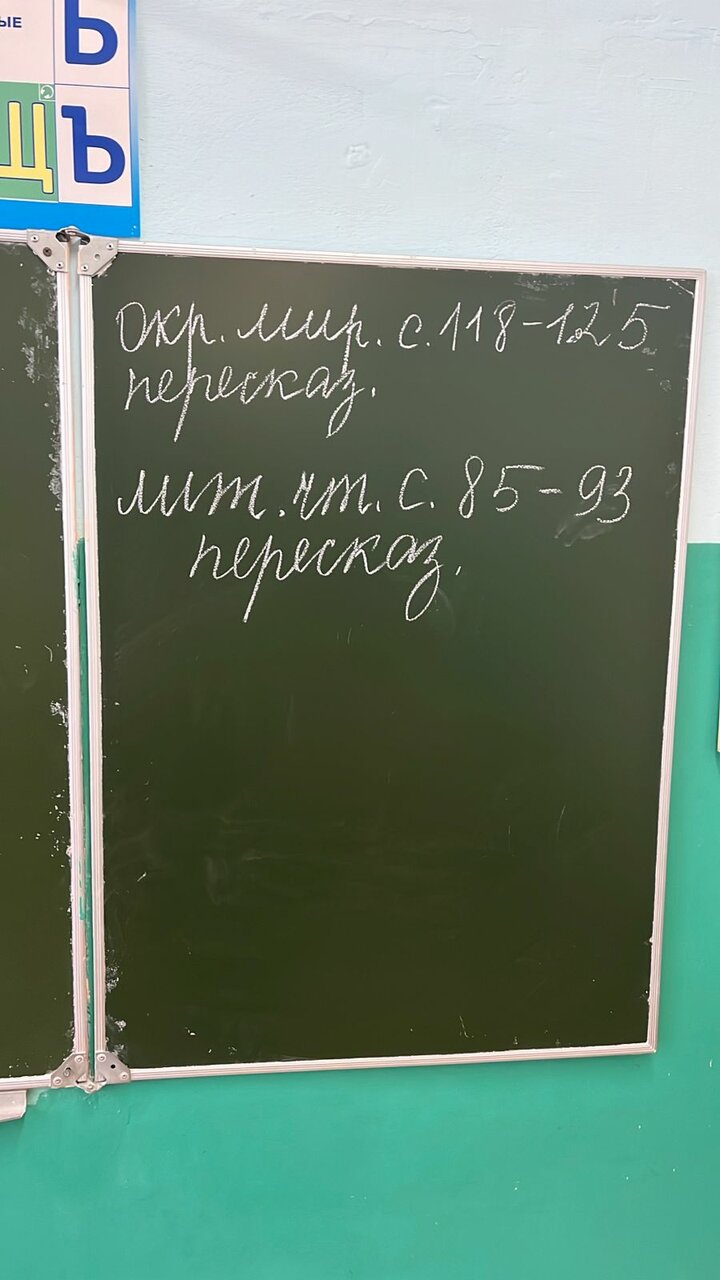 ЫЕ
Ь
Щ Ъ
окр. мир. с. 118-125
пересказ.
лит. чт. с. 85-93
пересказ.